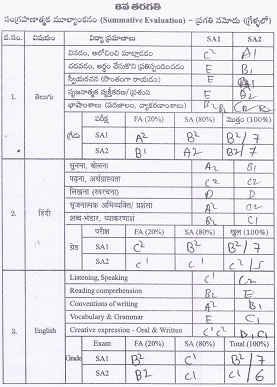 6వ తరగతి
సంగ్రహణాత్మక మూల్యాంకనం (Summative Evaluation) - ప్రగతి నమోదు (గ్రేళ్ళలో)
వ.సం. విషయం విద్యా ప్రమాణాలు SA1 SA2
వినడం, ఆలోచించి మాట్లాడడం C² A1
చదవడం, అర్థం చేసుకొని ప్రతిస్పందించడం E B1
స్వీయరచన (సొంతంగా రాయడం) E C1
సృజనాత్మక వ్యక్తీకరణ/ ప్రశంస E B2
భాషాంశాలు (పదజాలం, వ్యాకరణాంశాలు)
1. తెలుగు
పరీక్ష FA (20%) SA (80%) మొత్తం (100%)
గ్రేడు SA1 A² B² B²/7
SA2 B1 A2 B2/7
सुनना, बोलना A² B1
पढ़ना, अर्थग्राह्यता C² C2
लिखना (स्वरचना) D D
सृजनात्मक अभिव्यक्ति/ प्रशंसा A² B²
शब्द-भंडार, व्याकरणांश C¹
2. हिंदी
परीक्षा FA (20%) SA (80%) कुल (100%)
ग्रेड SA1 C² B² B²/7
SA2 B² C² C²/5
Listening, Speaking C² C1
Reading comprehension E B²
Conventions of writing A² B1
Vocabulary & Grammar E C1
Creative expression - Oral & Written
3. English
Exam FA (20%) SA (80%) Total (100%)
Grade SA1 B² C¹ B²/7
SA2 B2 C1 C1/6